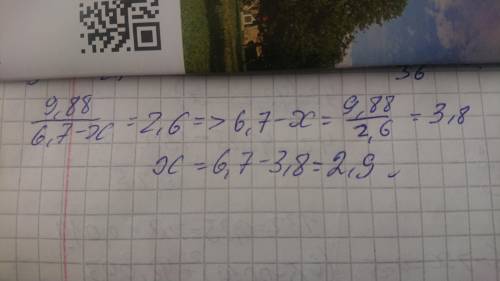 36
9,88/(6,7-x) = 2,6 => 6,7-x = 9,88/2,6 = 3,8
x = 6,7-3,8 = 2,9